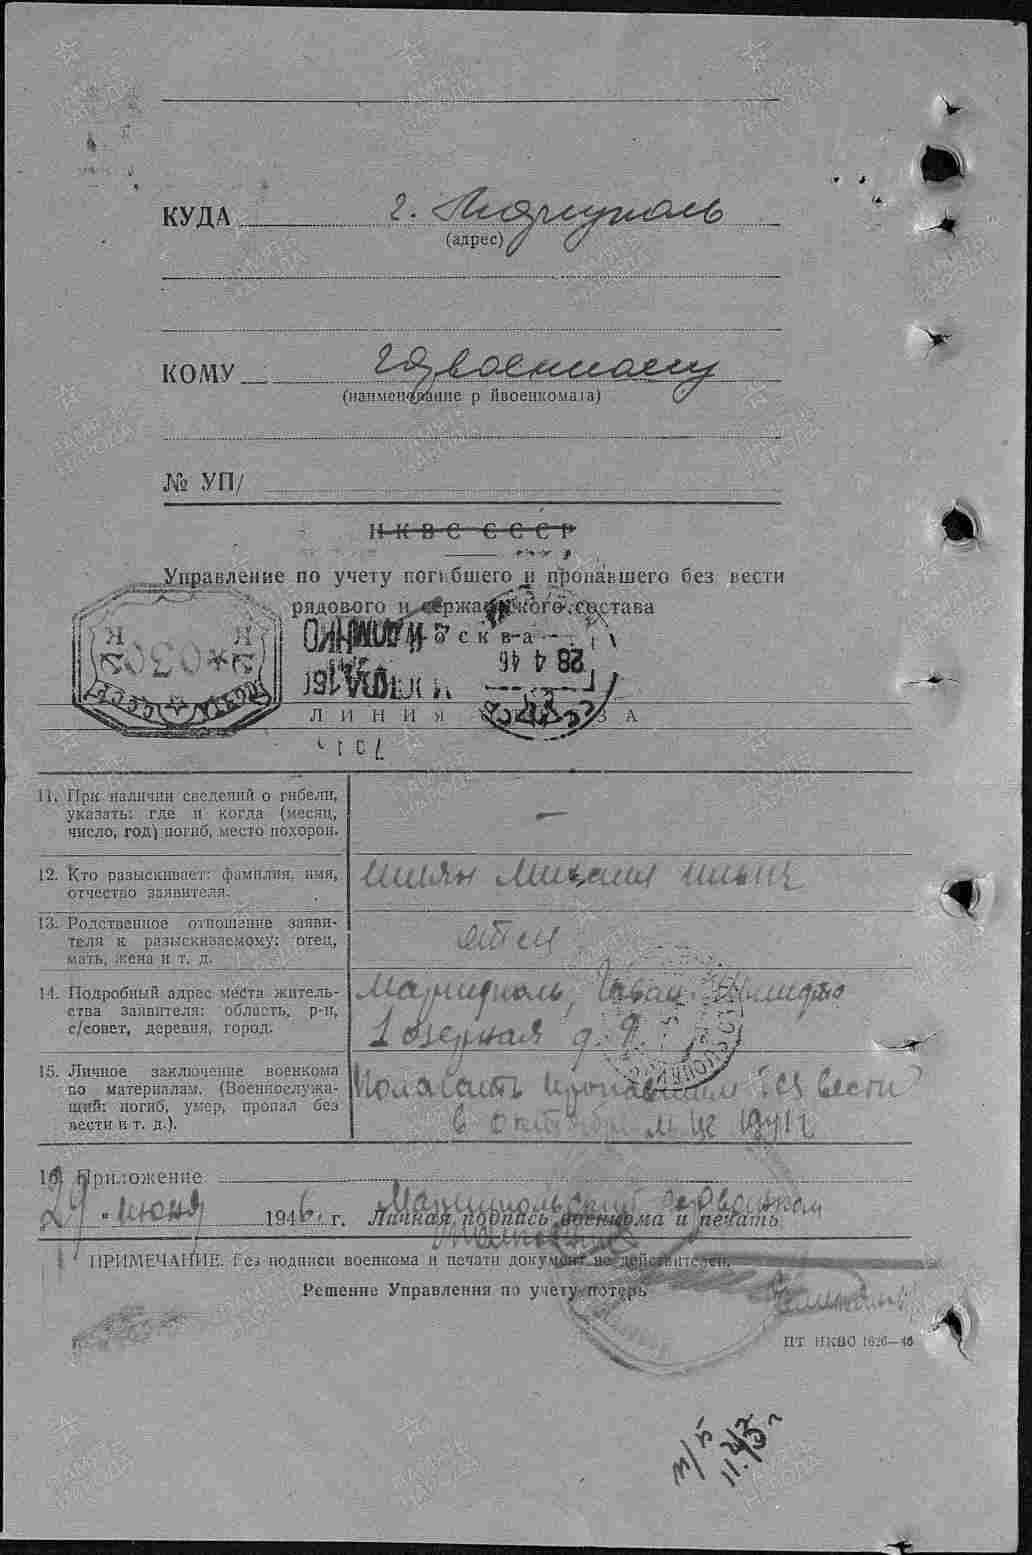 КУДА г. Мариуполь
(адрес)
КОМУ горвоенкому
(наименование р йвоенкомата)
№ УП/
НКВС СССР
Управление по учету погибшего и пропавшего без вести
рядового и сержантского состава
Москва
28 4 46
СССР
ЛИНИЯ З А
11. При наличии сведений о гибели,
указать: где и когда (месяц,
число, год) погиб, место похорон.
—
12. Кто разыскивает: фамилия, имя,
отчество заявителя.
Михаил Ильич
13. Родственное отношение заяви-
теля к разыскиваемому: отец,
мать, жена и т. д.
отец
14. Подробный адрес места житель-
ства заявителя: область, р-н,
с/совет, деревня, город.
Мариуполь, Гавань
1 Озерная д. 9.
15. Личное заключение военкома
по материалам. (Военнослужа-
щий: погиб, умер, пропал без
вести и т. д.).
Полагать пропавшим без вести
в октябре м-це 1941 г
16. Приложение
29 " июня 1946 г. Мариупольский горвоенком
Личная подпись военкома и печать
ПРИМЕЧАНИЕ. Без подписи военкома и печати документ не действителен.
Решение Управления по учету потерь
ПТ НКВС 1626—46